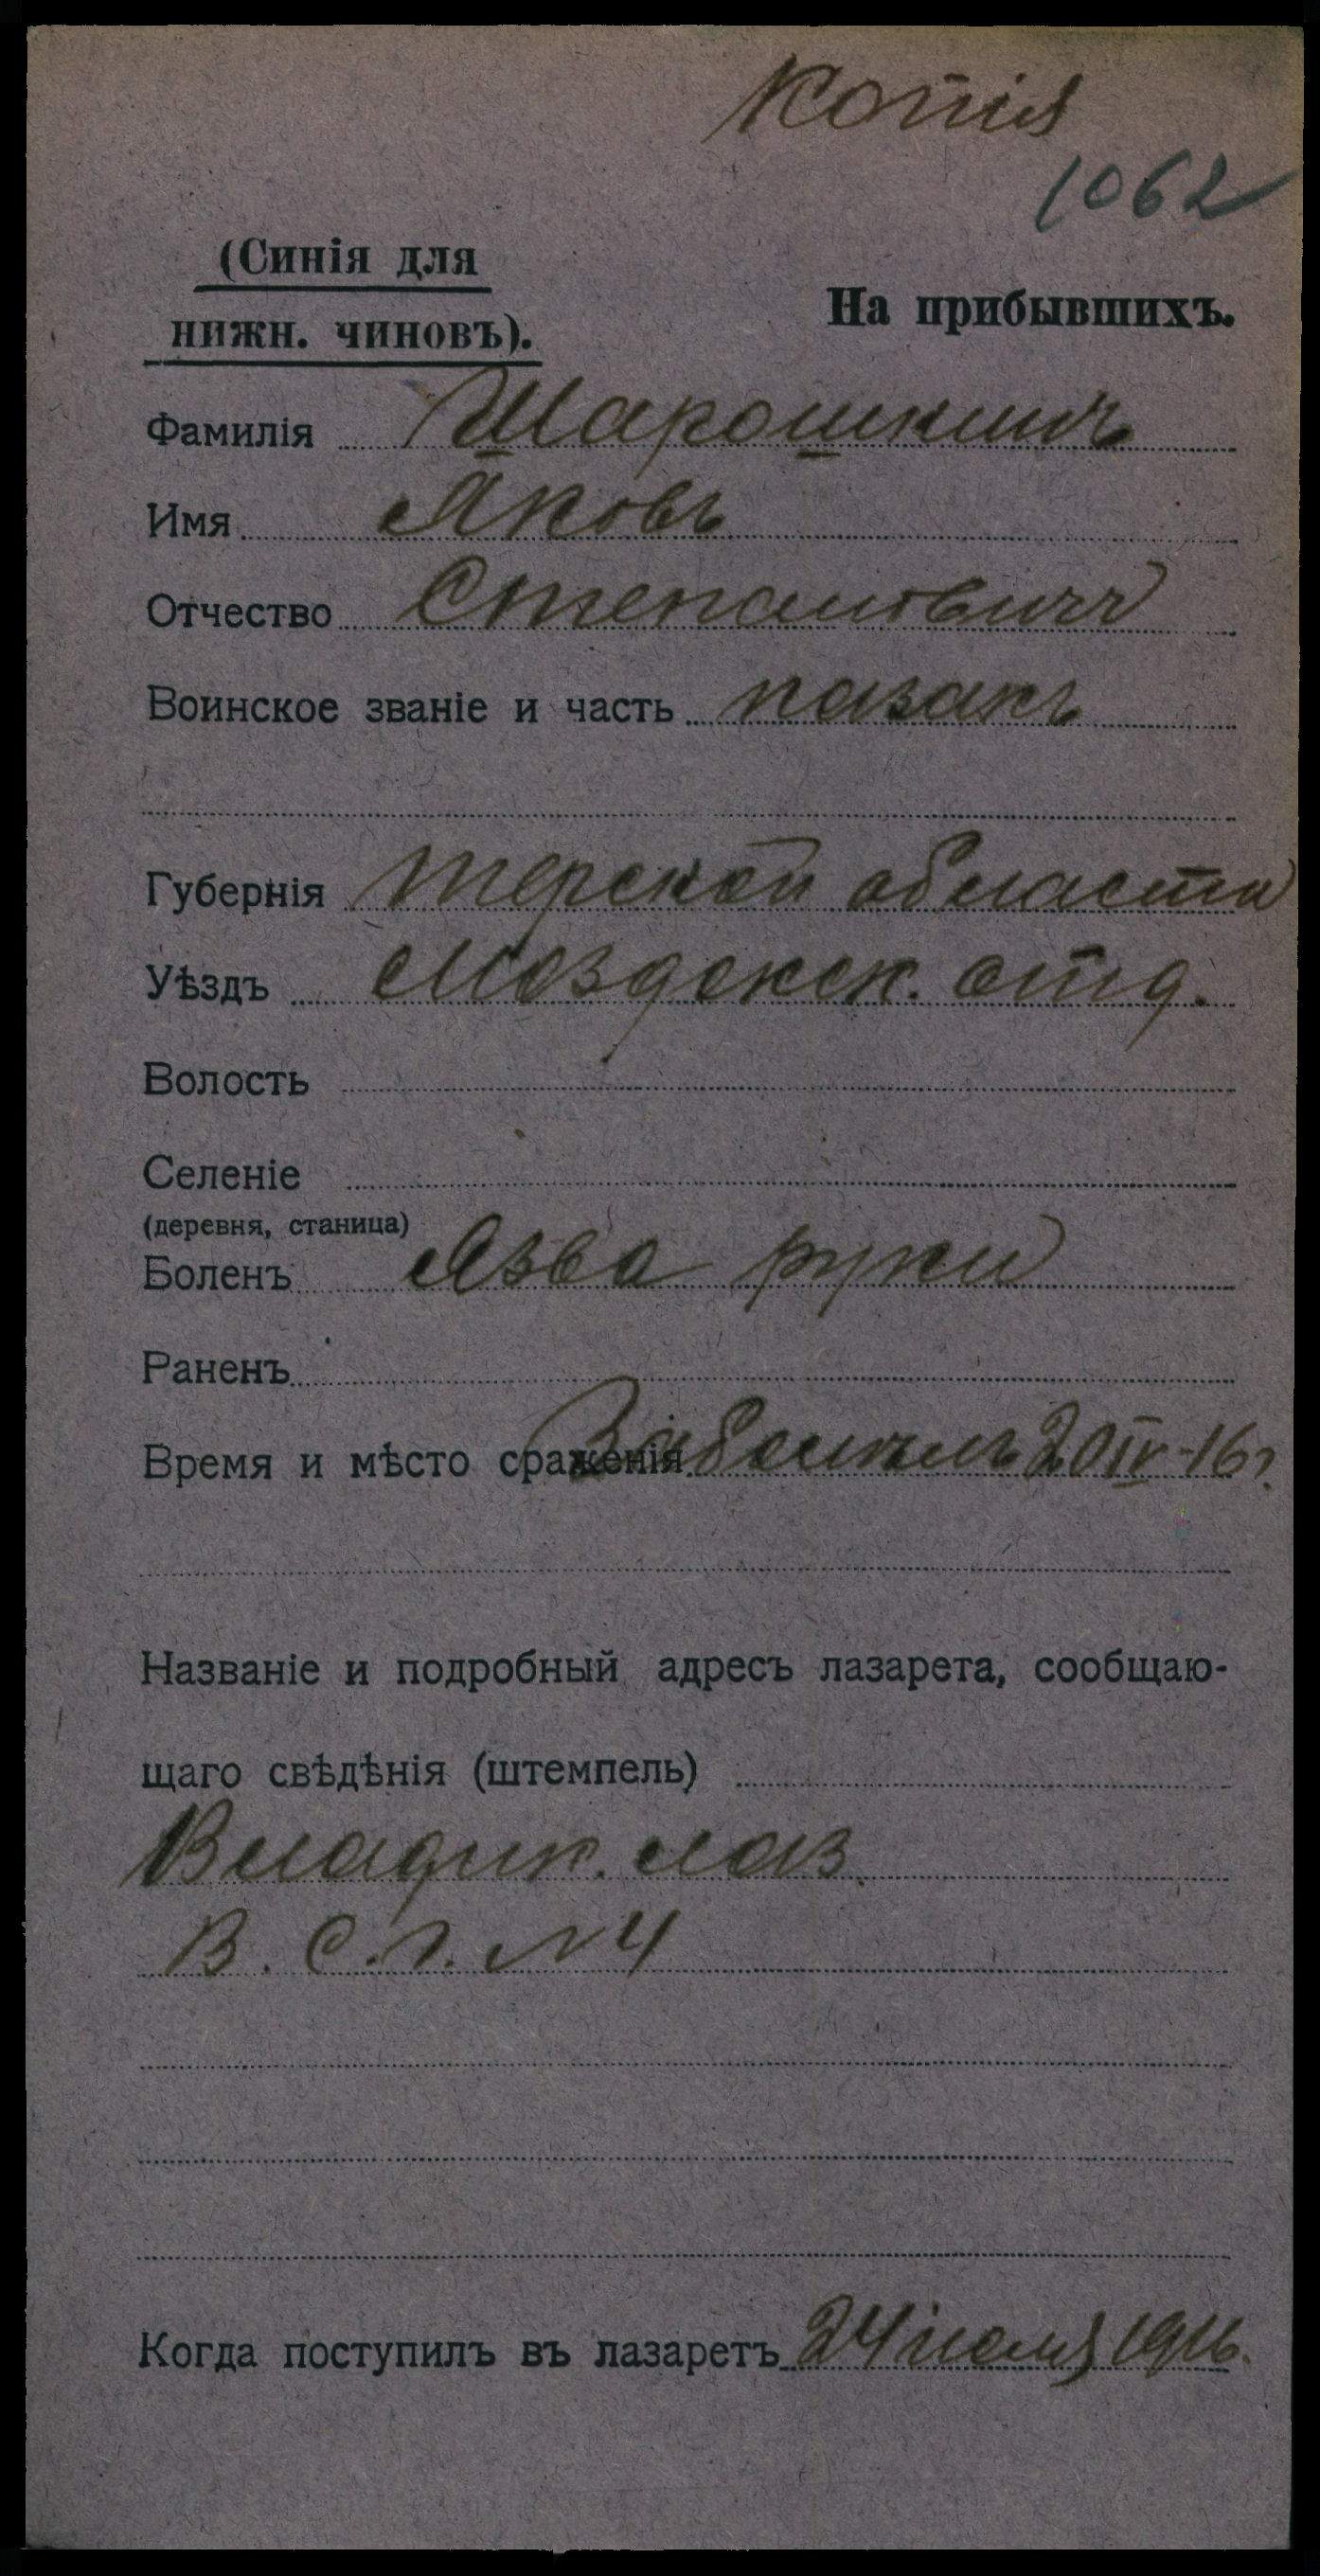 Копія
1062
(Синія для
нижн. чиновъ).
На прибывшихъ.
Фамилія Шарошкинъ
Имя Яковъ
Отчество Степановичъ
Воинское званіе и часть казакъ
Губернія Терской области
Уѣздъ Моздокск. отд.
Волость
Селеніе
(деревня, станица)
Боленъ Язва руки
Раненъ
Время и мѣсто сраженія Заболѣлъ 20 IV-16 г.
Названіе и подробный адресъ лазарета, сообщаю-
щаго свѣдѣнія (штемпель)
Владик. лаз.
В. С. Г. № 4
Когда поступилъ въ лазаретъ 24 іюля 1916.